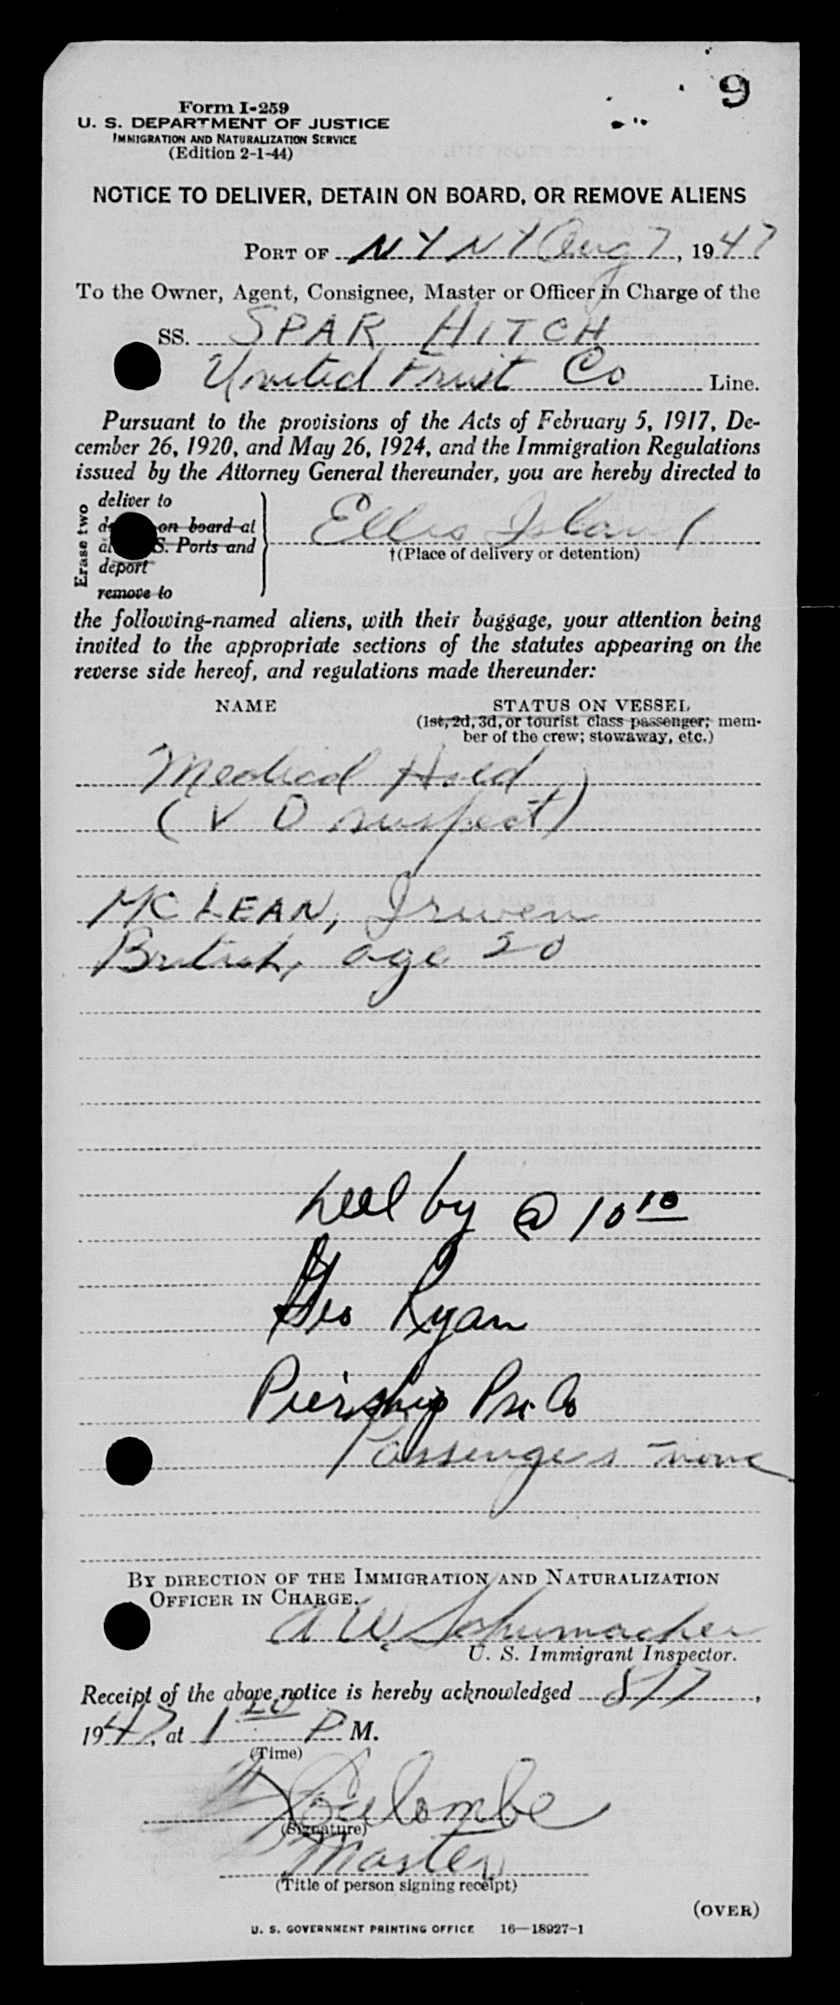 9
Form I-259
U. S. DEPARTMENT OF JUSTICE
IMMIGRATION AND NATURALIZATION SERVICE
(Edition 2-1-44)
NOTICE TO DELIVER, DETAIN ON BOARD, OR REMOVE ALIENS
PORT OF N Y N Y Aug 7, 1947
To the Owner, Agent, Consignee, Master or Officer in Charge of the
SS. SPAR HITCH
United Fruit Co Line.
Pursuant to the provisions of the Acts of February 5, 1917, De-
cember 26, 1920, and May 26, 1924, and the Immigration Regulations
issued by the Attorney General thereunder, you are hereby directed to
Erase two
deliver to
on board at
S. Ports and
deport
remove to
Ellis Island
†(Place of delivery or detention)
the following-named aliens, with their baggage, your attention being
invited to the appropriate sections of the statutes appearing on the
reverse side hereof, and regulations made thereunder:
NAME STATUS ON VESSEL
(1st, 2d, 3d, or tourist class passenger; mem-
ber of the crew; stowaway, etc.)
Medical Hold
(V D suspect)
MCLEAN, Irwen
British, age 20
by @ 10 10
Geo Ryan
Co
Passengers - none
BY DIRECTION OF THE IMMIGRATION AND NATURALIZATION
OFFICER IN CHARGE.
A W. Schumacher
U. S. Immigrant Inspector.
Receipt of the above notice is hereby acknowledged 8/7,
1947, at 1 20 P M.
(Time)
(Signature)
Master
(Title of person signing receipt)
(OVER)
U. S. GOVERNMENT PRINTING OFFICE 16—18927-1